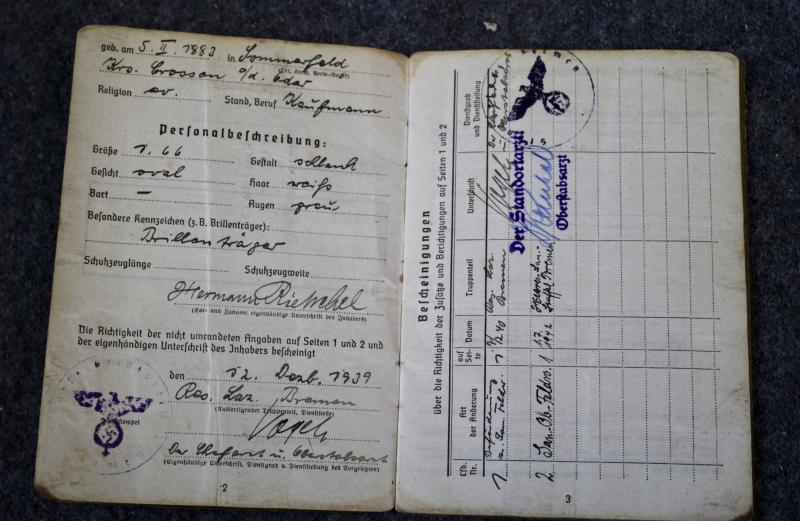 geb. am 5. II. 1883 in Sommerfeld
(Ort, Kreis, Verw.-Bezirk)
Krs. Crossen a/d. Oder
Religion ev. Stand, Beruf Kaufmann
Personalbeschreibung:
Größe 1.66 Gestalt schlank
Gesicht oval Haar weiß
Bart – Augen grau
Besondere Kennzeichen (z. B. Brillenträger):
Brillenträger
Schuhzeuglänge Schuhzeugweite
Hermann
(Vor- und Zuname, eigenhändige Unterschrift des Inhabers)
Die Richtigkeit der nicht umrandeten Angaben auf Seiten 1 und 2 und
der eigenhändigen Unterschrift des Inhabers bescheinigt
den 12. Dezb. 1939
Res. Laz. Bremen
(Ausfertigender Truppenteil, Dienststelle)
Dienststempel
Der Chefarzt u. Oberstabsarzt
(Eigenhändige Unterschrift, Dienstgrad u. Dienststellung des Vorgesetzten)
2
Bescheinigungen
über die Richtigkeit der Zusätze und Berichtigungen auf Seiten 1 und 2
Lfd. Nr. Art der Änderung auf Seite Datum Truppenteil Unterschrift Dienstgrad und Dienststellung
1 Beförderung 1 40 Res. Laz.
z. San. Feldw. Bremen
2 San. Ob. Feldw. 1 1942 Bremen
Der Standortarzt
Oberstabsarzt
3